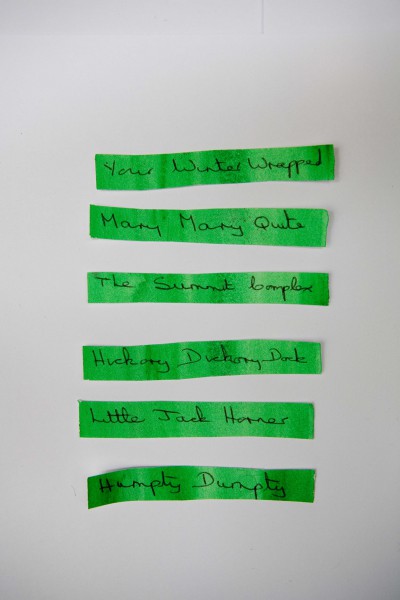 Your Winter Wrapped
Mary Mary Quite
The Summit Complex
Hickory Dickory Dock
Little Jack Horner
Humpty Dumpty